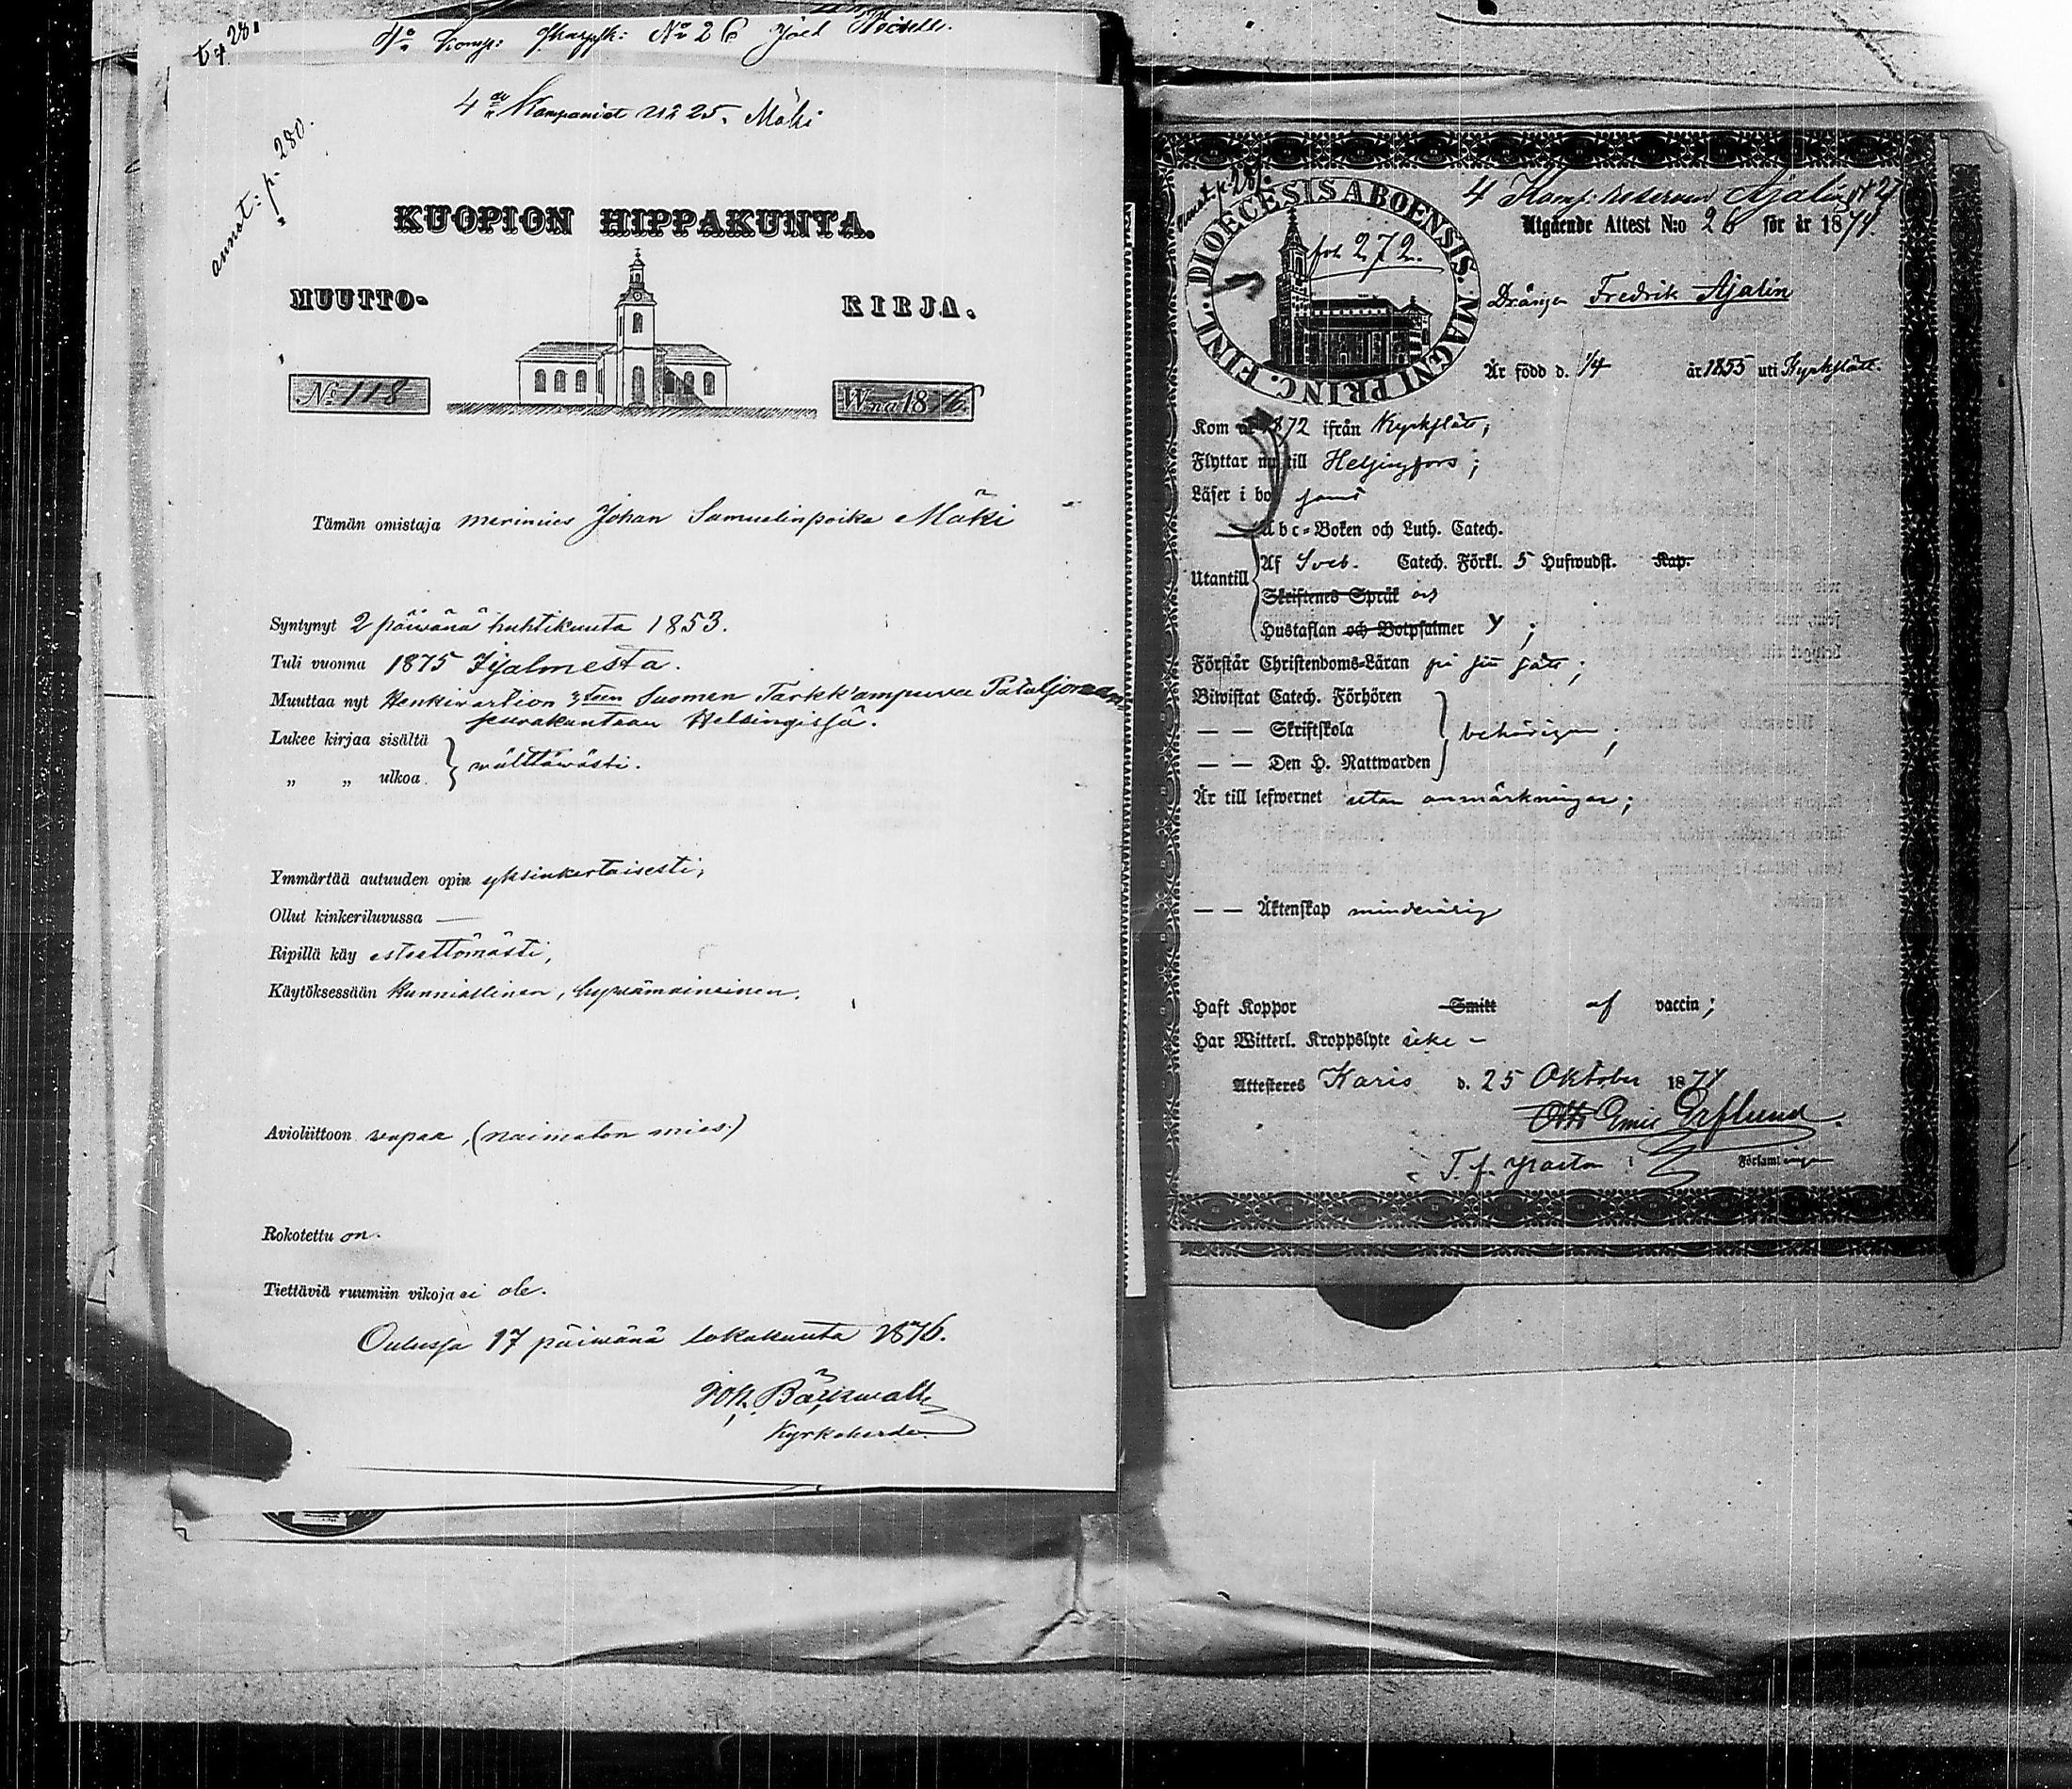 4de Komp: Skarpsk: No 26 Joel
4de Kompaniet No 25. Mäki
annst: p. 280.
KUOPION HIPPAKUNTA.
MUUTTO-
KIRJA.
No 118
W:na 1876.
Tämän omistaja merimies Johan Samuelinpoika Mäki
Syntynyt 2 päiwänä huhtikuuta 1853.
Tuli vuonna 1875 Iijalmesta.
Muuttaa nyt Henkiwartion 3:teen Suomen Tarkk'ampuwa Pataljonan
seurakuntaan Helsingissä.
Lukee kirjaa sisältä
„ „ ulkoa
wälttäwästi.
Ymmärtää autuuden opin yksinkertaisesti,
Ollut kinkeriluvussa —
Ripillä käy esteettömästi,
Käytöksessään kunniallinen, hywämaineinen.
Avioliittoon wapaa, (naimaton mies.)
Rokotettu on.
Tiettäviä ruumiin vikoja ei ole.
Oulussa 17 päiwänä lokakuuta 1876.
Joh. Bäckwall
Kyrkoherde
annst. p. 281.
4 Komp: Reserven Ajalin No 27
FINL. DIOECESIS ABOENSIS. MAGNI PRINC.
fol. 272.
Utgående Attest N:o 26 för år 1874
Drängen Fredrik Ajalin
Är född d. 1/4 år 1855 uti Kyrkslätt.
Kom år 1872 ifrån Kyrkslätt;
Flyttar nu till Helsingfors;
Läser i bok
Abc-Boken och Luth. Catech.
Utantill
Af Sveb. Catech. Förkl. 5 Hufwudst. Kap.
Skriftenes Språk och
Hustaflan och Botpsalmer y;
Förstår Christendoms-Läran på sitt sätt;
Biwistat Catech. Förhören
— — Skriftskola
— — Den H. Nattwarden
behörigen;
Är till lefwernet utan anmärkningar;
— — Äktenskap minderårig
Haft Koppor Smitt af vaccin;
Har Witterl. Kroppslyte icke –
Attesteres Karis d. 25 Oktober 1874
Otto Emil
T. f. Pastor i Församlingen